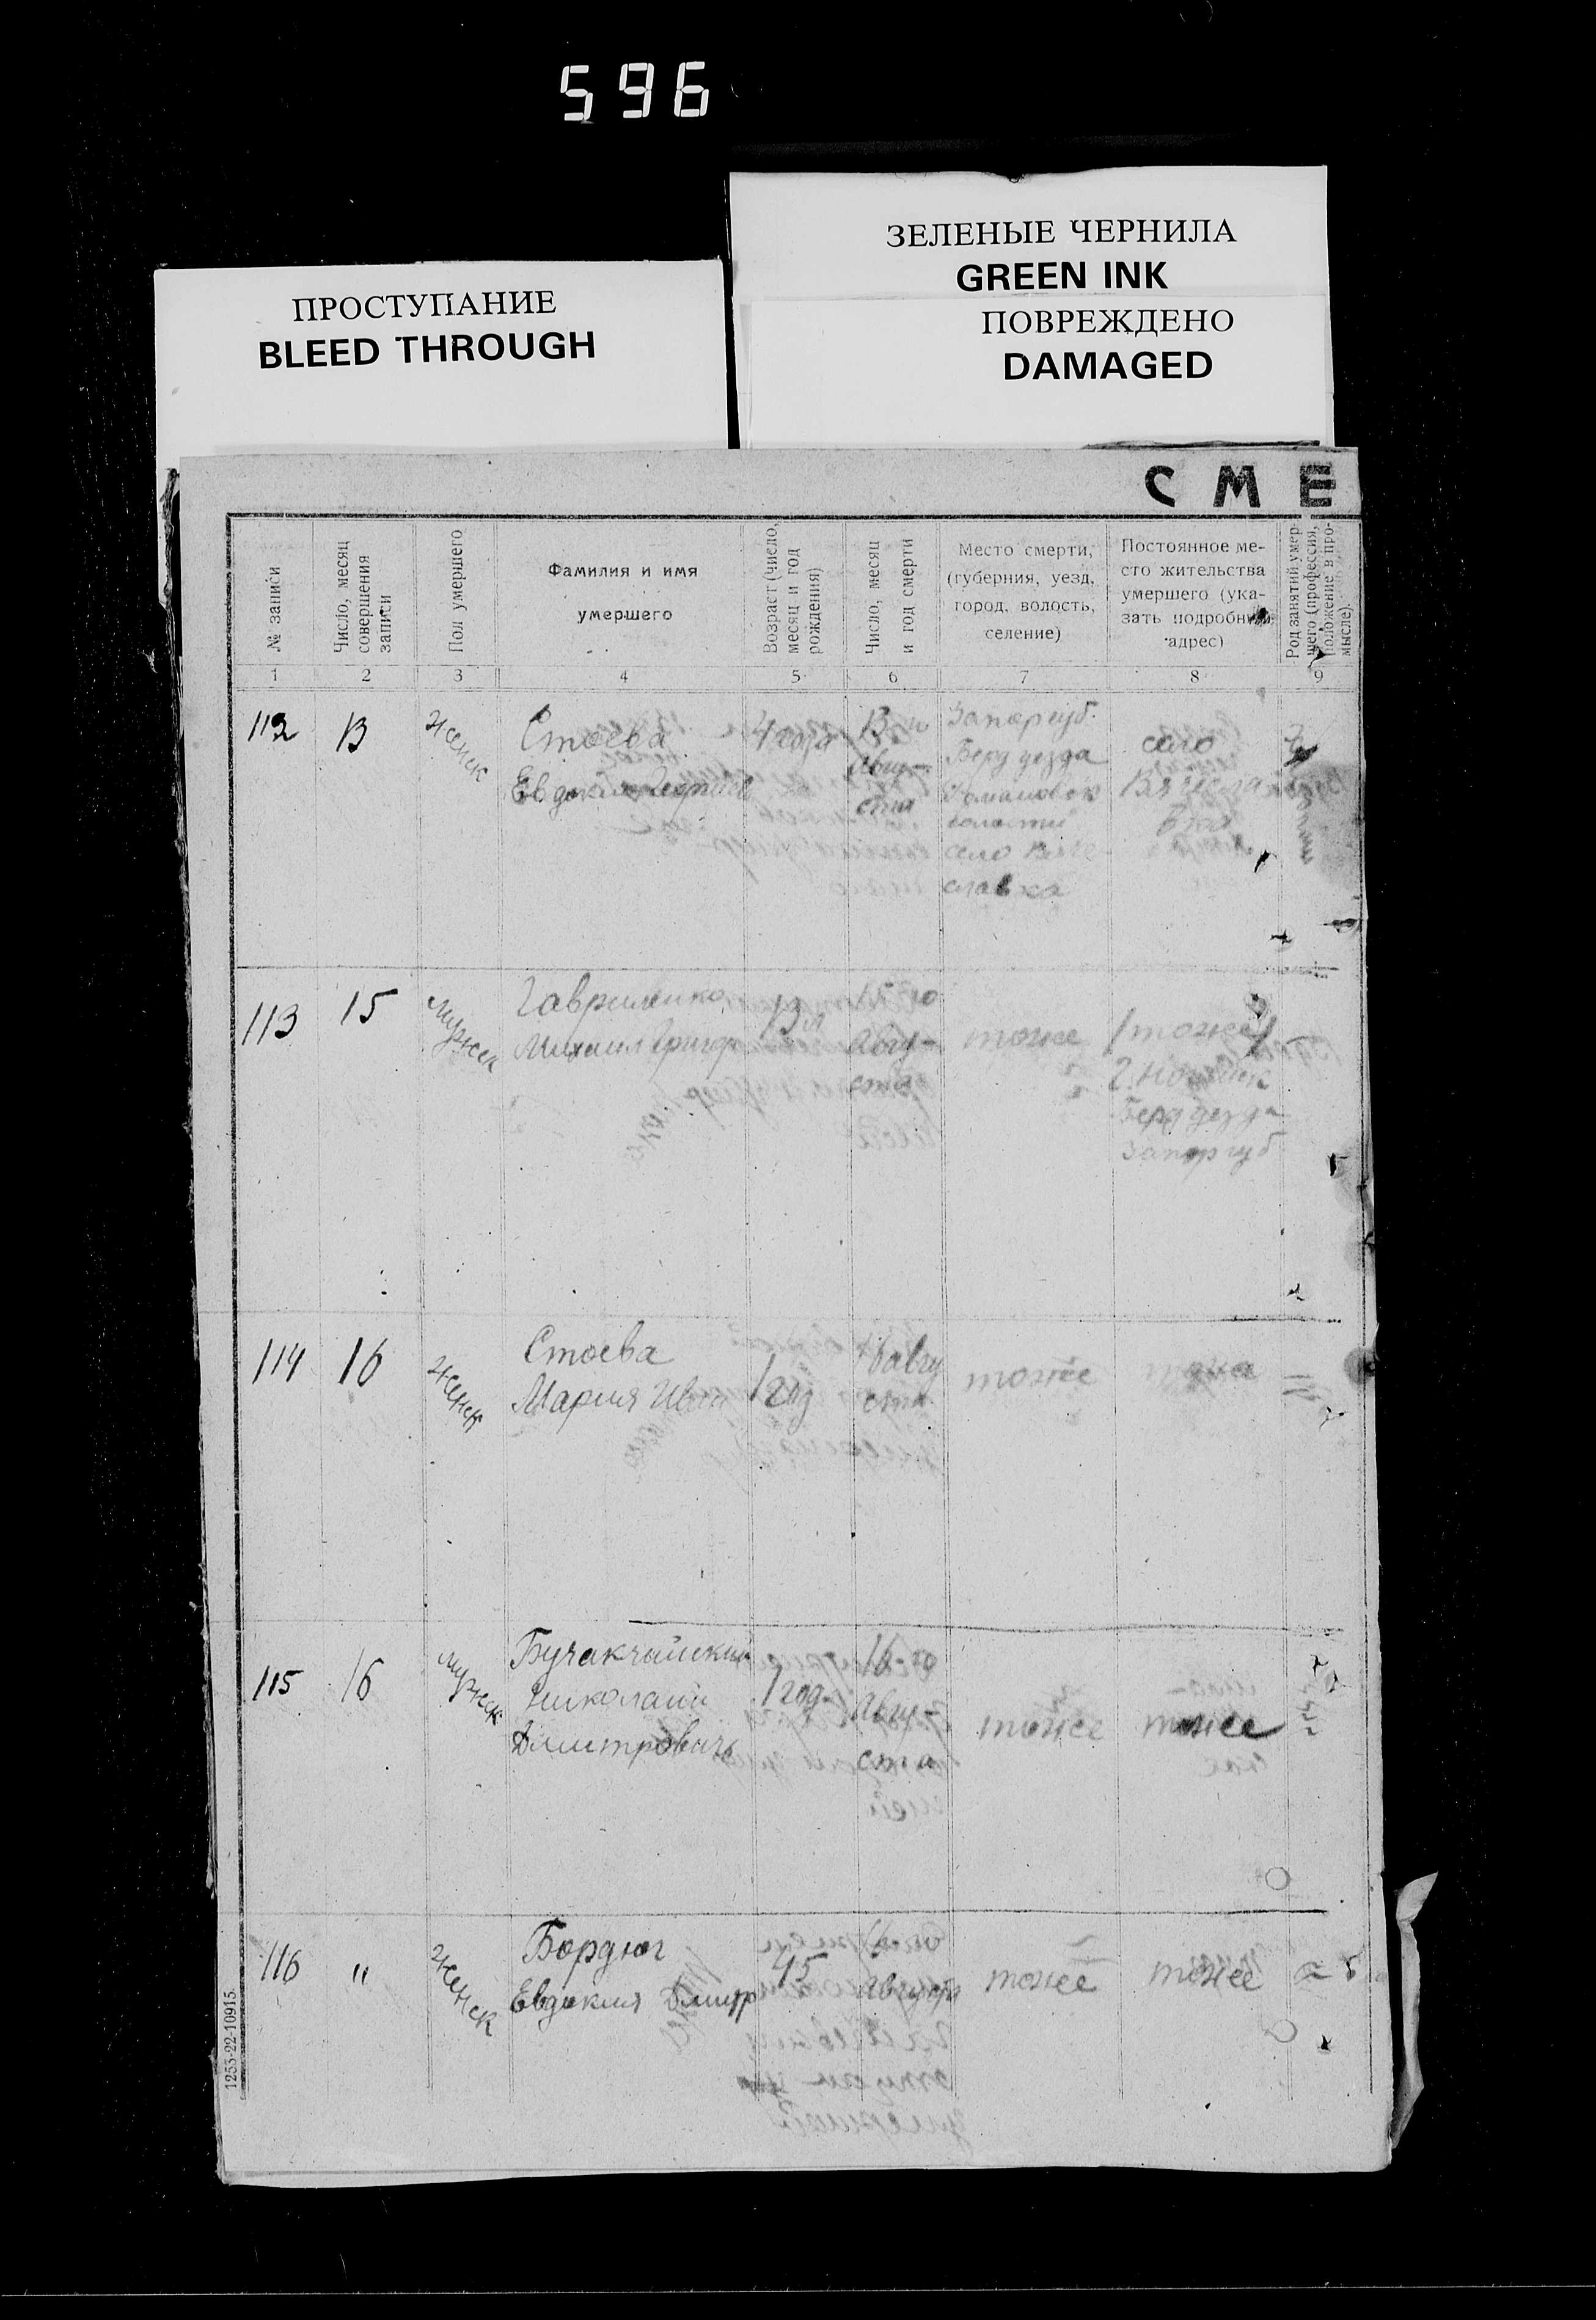 596
ЗЕЛЕНЫЕ ЧЕРНИЛА
GREEN INK
ПОВРЕЖДЕНО
DAMAGED
ПРОСТУПАНИЕ
BLEED THROUGH
СМЕ
№ записи
Число, месяц
совершения
записи
Пол умершего
Фамилия и имя
умершего
Возраст (число,
месяц и год
рождения)
Число, месяц
и год смерти
Место смерти,
(губерния, уезд,
город, волость,
селение)
Постоянное ме-
сто жительства
умершего (ука-
зать подробный
адрес)
Род занятий умер-
шего (профессия,
положение в про-
мысле).
1 2 3 4 5 6 7 8 9
112 13 женск
Стоева
Евдокия
4 года
13 го
Авгу-
ста
Запор губ.
Берд уезда
волости
село Вяче-
славка
село
113 15 мужск
Гавриленко
Михаил Григор
13 л
15 го
Авгу-
ста
тоже
/тоже/
Берд уезда
Запор губ
114 16 женск
Стоева
Мария Иван
1 год
16 авгу
ста
тоже
115 16 мужск
Бучакчийский
Николай
Дмитрович
1 год
16-го
Авгу-
ста
тоже тоже
116 " женск
Бордюг
Евдокия Дмитр
45
16
Августа
тоже тоже
1253-22-10915.